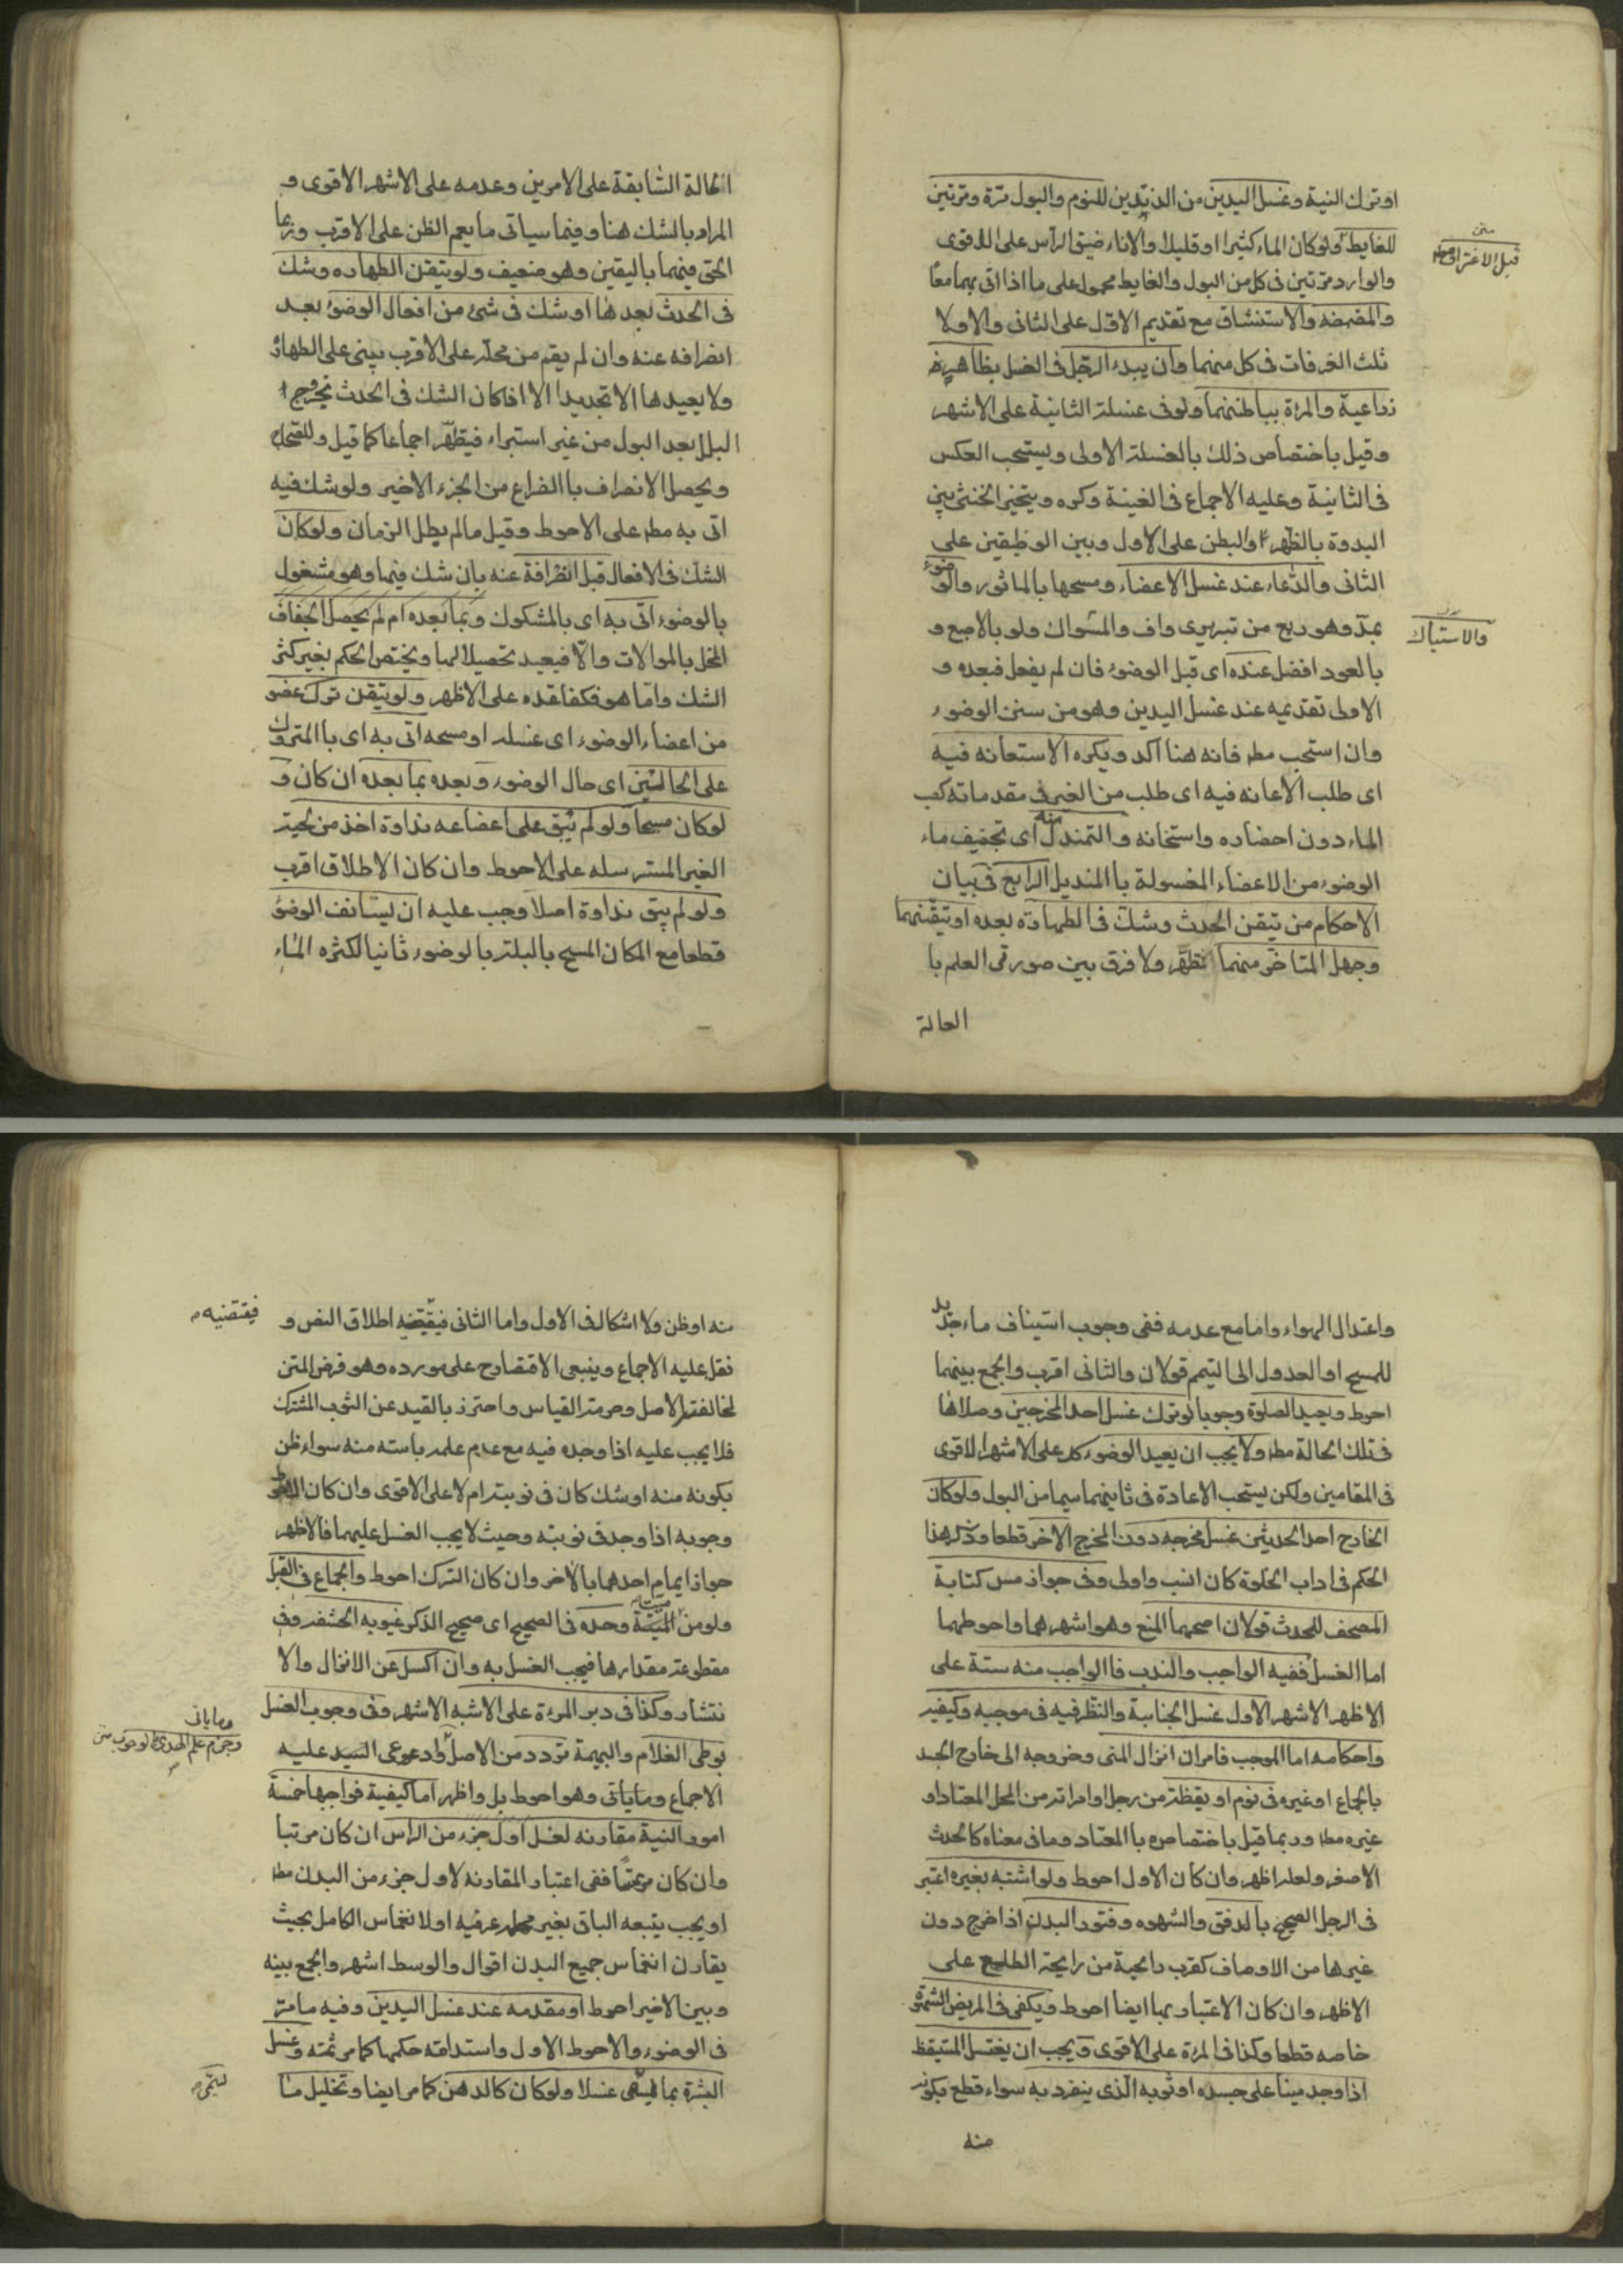 او ترك النية وغسل اليدين من الزندين للنوم والبول مرة ومرتين
للغايط ولو كان الماء كثيرا او قليلا والاناء ضيق الرأس على الاقوى
قبل الاغتراف
متن
والوارد مرتين في كل من البول والغايط محمول على ما اذا اتى بهما معًا
والمضمضه والاستنشاق مع تقديم الاول على الثاني والاولا
ثلث الغرفات في كل منهما وان يبدء الرجل في الغسل بظاهر
ذراعيه والمرءة بباطنهما ولو في غسلة الثانية على الاشهر
وقيل باختصاص ذلك بالغسلة الاولى ويستحب العكس
في الثانية وعليه الاجماع في الغنية وكره ويتخير الخنثى بين
البدوة بالظهر والبطن على الاول وبين الوظيفتين على
الثاني والدعاء عند غسل الاعضاء ومسحها بالماثور والوضوء
بمدّ وهو ربع من تبريزى واف والمسواك ولو بالاصبع و
والاستياك
بالعود افضل عنده اى قبل الوضوء فان لم يفعل فبعده و
الاولى تقديمه عند غسل اليدين وهو من سنن الوضوء
وان استحب مط فانه هنا آكد ويكره الاستعانه فيه
اى طلب الاعانه فيه اى طلب من الغير في مقدماته كصب
الماء دون احضاره واستخانه والتمندل منه اى تجفيف ماء
الوضوء من الاعضاء المغسولة با المنديل الرابع في بيان
الاحكام من تيقن الحدث وشك في الطهارة بعده او تيقنهما
وجهل المتاخر منهما تطهّر ولا فرق بين صورتي العلم با
الحالة
الحالة السّابقة على الامرين وعدمه على الاشهر الاقوى و
المراد بالشك هنا وفيما سياتى ما يعم الظن على الاقرب وربما
الحق فيهما باليقين وهو ضعيف ولو تيقن الطهاره وشك
في الحدث بعدها او شك في شئ من افعال الوضوء بعد
انصرافه عنه وان لم يقم من محله على الاقرب بنى على الطهارة
ولا يعيدها الا تجديدا الا اذا كان الشك في الحدث بخروج
البلل بعد البول من غير استبراء فيتطهّر اجماعا كما قيل وللصحاح
ويحصل الانصراف با الفراغ من الجزء الاخير ولو شك فيه
اتى به مط على الاحوط وقيل ما لم يطل الزمان ولو كان
الشك في الافعال قبل انصرافه عنه بان شك فيها وهو مشغول
بالوضوء اتى به اى بالمشكوك وبما بعده ام لم يحصل الجفاف
المخل بالموالات والّا فيعيد تحصيلا لها ويختص الحكم بغير كثير
الشك وامّا هو فكفاقده على الاظهر ولو تيقن ترك عضو
من اعضاء الوضوء اى غسله او مسحه اتى به اى با المتروك
على الحالتين اى حال الوضوء وبعده بما بعده ان كان و
لو كان مسحا ولو لم يبق على اعضاءه نداوة اخذ من لحيته
الغير المسترسله على الاحوط وان كان الاطلاق اقرب
ولو لم يبق نداوة اصلا وجب عليه ان يستانف الوضوء
قطعا مع امكان المسح بالبلة بالوضوء ثانيا لكثره الماء
واعتدال الهواء واما مع عدمه ففى وجوب استيناف ماء جديد
للمسح او العدول الى التيمم قولان والثاني اقرب والجمع بينهما
احوط ويعيد الصلوة وجوبا لو ترك غسل احد المخرجين وصلاها
في تلك الحالة مط ولا يجب ان يعيد الوضوء كله على الاشهر الاقوى
في المقامين ولكن يستحب الاعادة في ثانيهما سيما من البول ولو كان
الخارج احد الحدثين غسل مخرجه دون المخرج الاخر قطعا وذكر هذا
الحكم في اداب الخلوة كان انسب واولى وفى جواز مس كتابة
المصحف للمحدث قولان اصحهما المنع وهو اشهرهما واحوطهما
اما الغسل ففيه الواجب والندب فا الواجب منه ستة على
الاظهر الاشهر الاول غسل الجنابة والنّظر فيه في موجبه وكيفيته
واحكامه اما الموجب فامران انزال المنى وخروجه الى خارج الجسد
با الجماع او غيره في نوم او يقظة من رجل او امراة من المحل المعتاد او
غيره مط وربما قيل باختصاصه با المعتاد وما في معناه كا الحدث
الاصغر ولعله اظهر وان كان الاول احوط ولو اشتبه بغيره اعتبر
في الرجل الصحيح بالدفق والشهوه وفتور البدن اذا خرج دون
غيرها من الاوصاف كقرب رايحة من رايحة الطلع على
الاظهر وان كان الاعتبار بها ايضا احوط ويكفى في المريض الشهوة
خاصه قطعا وكذا في المرءة على الاقوى ويجب ان يغتسل المستيقظ
اذا وجد منيا على جسده او ثوبه الّذى ينفرد به سواء قطع بكونه
منه
منه او ظن ولا اشكال في الاول واما الثاني فيقتضيه اطلاق النص و
فيقتضيه
نقل عليه الاجماع وينبغى الاقتصار على مورده وهو فرض المتن
لمخالفته الاصل وحرمة القياس واحترز بالقيد عن الثوب المشترك
فلا يجب عليه اذا وجده فيه مع عدم علمه بانه منه سواء ظن
بكونه منه او شك كان في نوبته ام لا على الاقوى وان كان الاحوط
وجوبه اذا وجد في نوبته وحيث لا يجب الغسل عليهما فالاظهر
جواز ايمام احدهما بالاخر وان كان الترك احوط والجماع في القبل
ولو من الميتة وحده في الصحيح اى صحيح الذكر غيوبه الحشفه وفى
مقطوعه مقدارها فيجب الغسل به وان اكسل عن الانزال والا
نتشار وكذا في دبر المرءة على الاشبه الاشهر وفى وجوب الغسل
بوطى الغلام والبهيمة تردد من الاصل ودعوى السيد عليه
ومما ياتى
وجزم علم الهدى بالوجوب متن
الاجماع ومما ياتى وهو احوط بل واظهر اما كيفية فواجبها خمسة
امور النية مقارنه لغسل اول جزء من الراس ان كان مرتبا
وان كان مرتمسا ففى اعتبار المقارنه لاول جزء من البدن مط
او يجب يتبعه الباقى بغير مهلة عرفيه او لانغماس الكامل بحيث
يقارن انغماس جميع البدن اقوال والوسط اشهر والجمع بينه
وبين الاخير احوط او مقدمه عند غسل اليدين وفيه ما مرّ
في الوضوء والاحوط الاول واستدامة حكمها كما مر ثمه وغسل
البشرة بما يسمّى غسلا ولو كان كالدهن كما مر ايضا وتخليل ما
يسمى